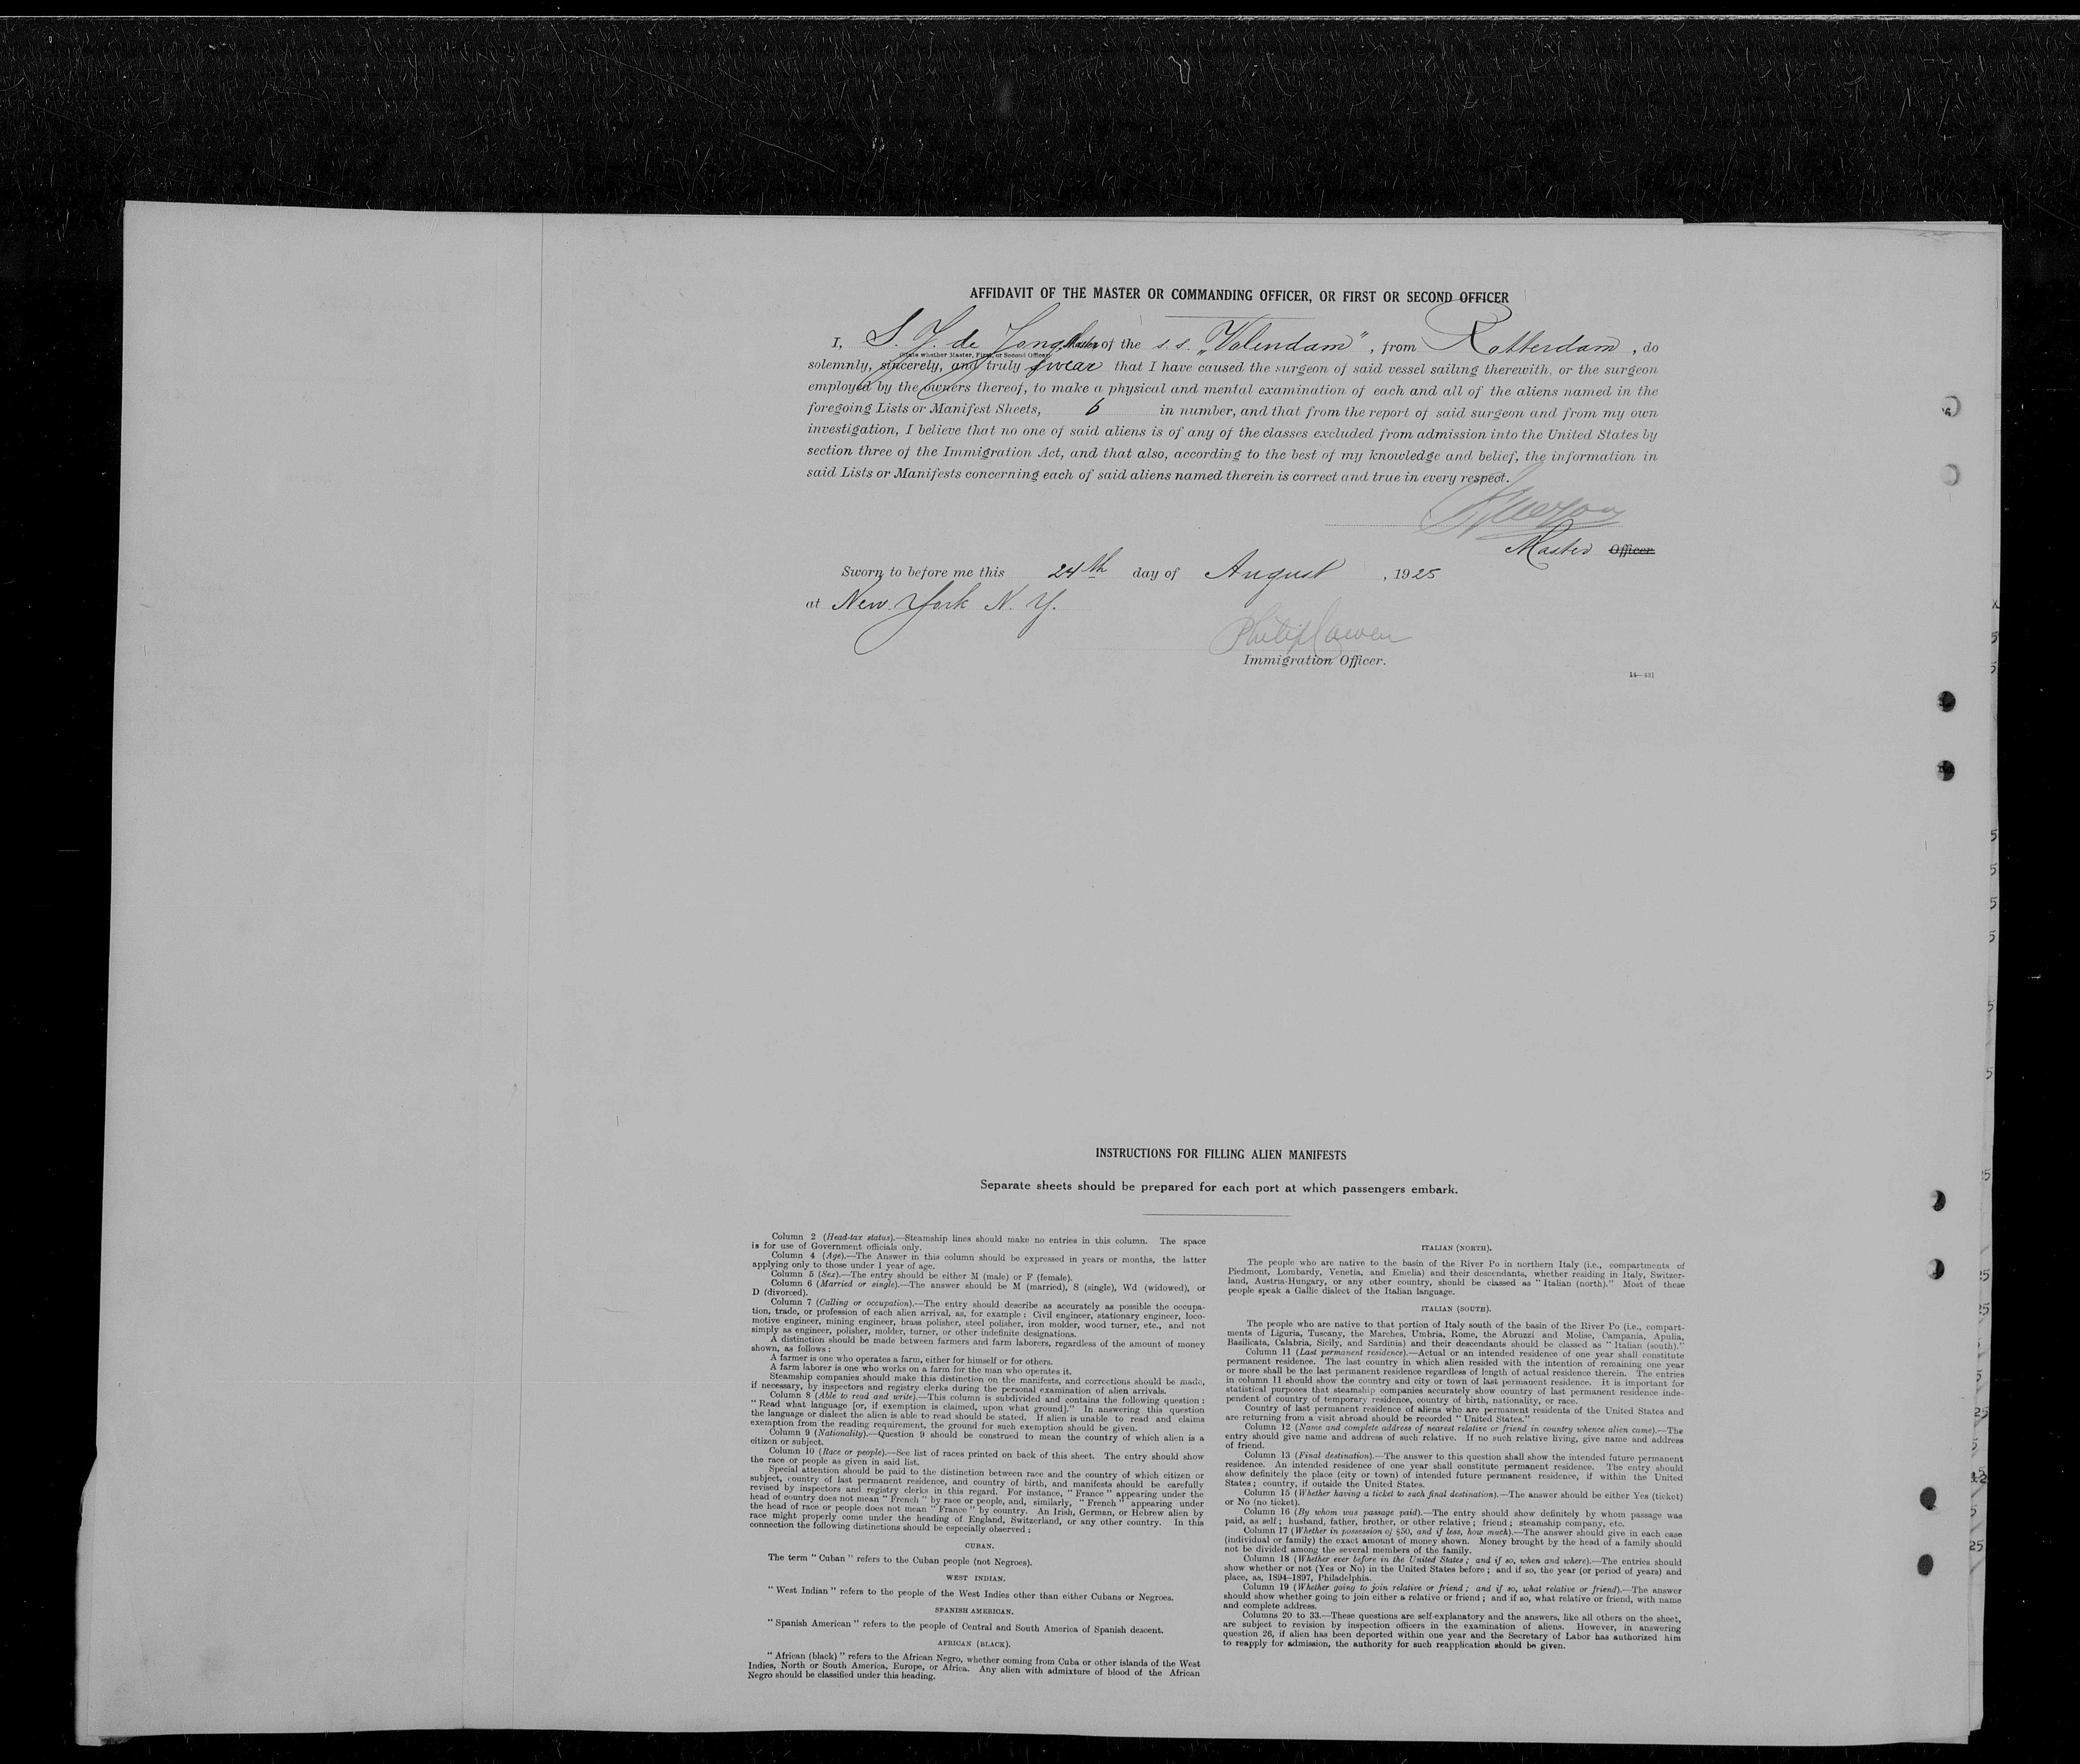 AFFIDAVIT OF THE MASTER OR COMMANDING OFFICER, OR FIRST OR SECOND OFFICER
I, S. J. de Jong Master of the s.s. „Volendam”, from Rotterdam, do
(State whether Master, First, or Second Officer)
solemnly, sincerely, and truly swear that I have caused the surgeon of said vessel sailing therewith, or the surgeon
employed by the owners thereof, to make a physical and mental examination of each and all of the aliens named in the
foregoing Lists or Manifest Sheets, 6 in number, and that from the report of said surgeon and from my own
investigation, I believe that no one of said aliens is of any of the classes excluded from admission into the United States by
section three of the Immigration Act, and that also, according to the best of my knowledge and belief, the information in
said Lists or Manifests concerning each of said aliens named therein is correct and true in every respect.
Master Officer
Sworn to before me this 24th day of August, 1925
at New York N. Y.
Philip Cowen
Immigration Officer.
14—431
INSTRUCTIONS FOR FILLING ALIEN MANIFESTS
Separate sheets should be prepared for each port at which passengers embark.
Column 2 (Head-tax status).—Steamship lines should make no entries in this column. The space
is for use of Government officials only.
Column 4 (Age).—The Answer in this column should be expressed in years or months, the latter
applying only to those under 1 year of age.
Column 5 (Sex).—The entry should be either M (male) or F (female).
Column 6 (Married or single).—The answer should be M (married), S (single), Wd (widowed), or
D (divorced).
Column 7 (Calling or occupation).—The entry should describe as accurately as possible the occupa-
tion, trade, or profession of each alien arrival, as, for example: Civil engineer, stationary engineer, loco-
motive engineer, mining engineer, brass polisher, steel polisher, iron molder, wood turner, etc., and not
simply as engineer, polisher, molder, turner, or other indefinite designations.
A distinction should be made between farmers and farm laborers, regardless of the amount of money
shown, as follows:
A farmer is one who operates a farm, either for himself or for others.
A farm laborer is one who works on a farm for the man who operates it.
Steamship companies should make this distinction on the manifests, and corrections should be made,
if necessary, by inspectors and registry clerks during the personal examination of alien arrivals.
Column 8 (Able to read and write).—This column is subdivided and contains the following question:
"Read what language [or, if exemption is claimed, upon what ground]." In answering this question
the language or dialect the alien is able to read should be stated. If alien is unable to read and claims
exemption from the reading requirement, the ground for such exemption should be given.
Column 9 (Nationality).—Question 9 should be construed to mean the country of which alien is a
citizen or subject.
Column 10 (Race or people).—See list of races printed on back of this sheet. The entry should show
the race or people as given in said list.
Special attention should be paid to the distinction between race and the country of which citizen or
subject, country of last permanent residence, and country of birth, and manifests should be carefully
revised by inspectors and registry clerks in this regard. For instance, "France" appearing under the
head of country does not mean "French" by race or people, and, similarly, "French" appearing under
the head of race or people does not mean "France" by country. An Irish, German, or Hebrew alien by
race might properly come under the heading of England, Switzerland, or any other country. In this
connection the following distinctions should be especially observed:
CUBAN.
The term "Cuban" refers to the Cuban people (not Negroes).
WEST INDIAN.
"West Indian" refers to the people of the West Indies other than either Cubans or Negroes.
SPANISH AMERICAN.
"Spanish American" refers to the people of Central and South America of Spanish descent.
AFRICAN (BLACK).
"African (black)" refers to the African Negro, whether coming from Cuba or other islands of the West
Indies, North or South America, Europe, or Africa. Any alien with admixture of blood of the African
Negro should be classified under this heading.
ITALIAN (NORTH).
The people who are native to the basin of the River Po in northern Italy (i.e., compartments of
Piedmont, Lombardy, Venetia, and Emelia) and their descendants, whether residing in Italy, Switzer-
land, Austria-Hungary, or any other country, should be classed as "Italian (north)." Most of these
people speak a Gallic dialect of the Italian language.
ITALIAN (SOUTH).
The people who are native to that portion of Italy south of the basin of the River Po (i.e., compart-
ments of Liguria, Tuscany, the Marches, Umbria, Rome, the Abruzzi and Molise, Campania, Apulia,
Basilicata, Calabria, Sicily, and Sardinia) and their descendants should be classed as "Italian (south)."
Column 11 (Last permanent residence).—Actual or an intended residence of one year shall constitute
permanent residence. The last country in which alien resided with the intention of remaining one year
or more shall be the last permanent residence regardless of length of actual residence therein. The entries
in column 11 should show the country and city or town of last permanent residence. It is important for
statistical purposes that steamship companies accurately show country of last permanent residence inde-
pendent of country of temporary residence, country of birth, nationality, or race.
Country of last permanent residence of aliens who are permanent residents of the United States and
are returning from a visit abroad should be recorded "United States."
Column 12 (Name and complete address of nearest relative or friend in country whence alien came).—The
entry should give name and address of such relative. If no such relative living, give name and address
of friend.
Column 13 (Final destination).—The answer to this question shall show the intended future permanent
residence. An intended residence of one year shall constitute permanent residence. The entry should
show definitely the place (city or town) of intended future permanent residence, if within the United
States; country, if outside the United States.
Column 15 (Whether having a ticket to such final destination).—The answer should be either Yes (ticket)
or No (no ticket).
Column 16 (By whom was passage paid).—The entry should show definitely by whom passage was
paid, as self; husband, father, brother, or other relative; friend; steamship company, etc.
Column 17 (Whether in possession of $50, and if less, how much).—The answer should give in each case
(individual or family) the exact amount of money shown. Money brought by the head of a family should
not be divided among the several members of the family.
Column 18 (Whether ever before in the United States; and if so, when and where).—The entries should
show whether or not (Yes or No) in the United States before; and if so, the year (or period of years) and
place, as, 1894–1897, Philadelphia.
Column 19 (Whether going to join relative or friend; and if so, what relative or friend).—The answer
should show whether going to join either a relative or friend; and if so, what relative or friend, with name
and complete address.
Columns 20 to 33.—These questions are self-explanatory and the answers, like all others on the sheet,
are subject to revision by inspection officers in the examination of aliens. However, in answering
question 26, if alien has been deported within one year and the Secretary of Labor has authorized him
to reapply for admission, the authority for such reapplication should be given.